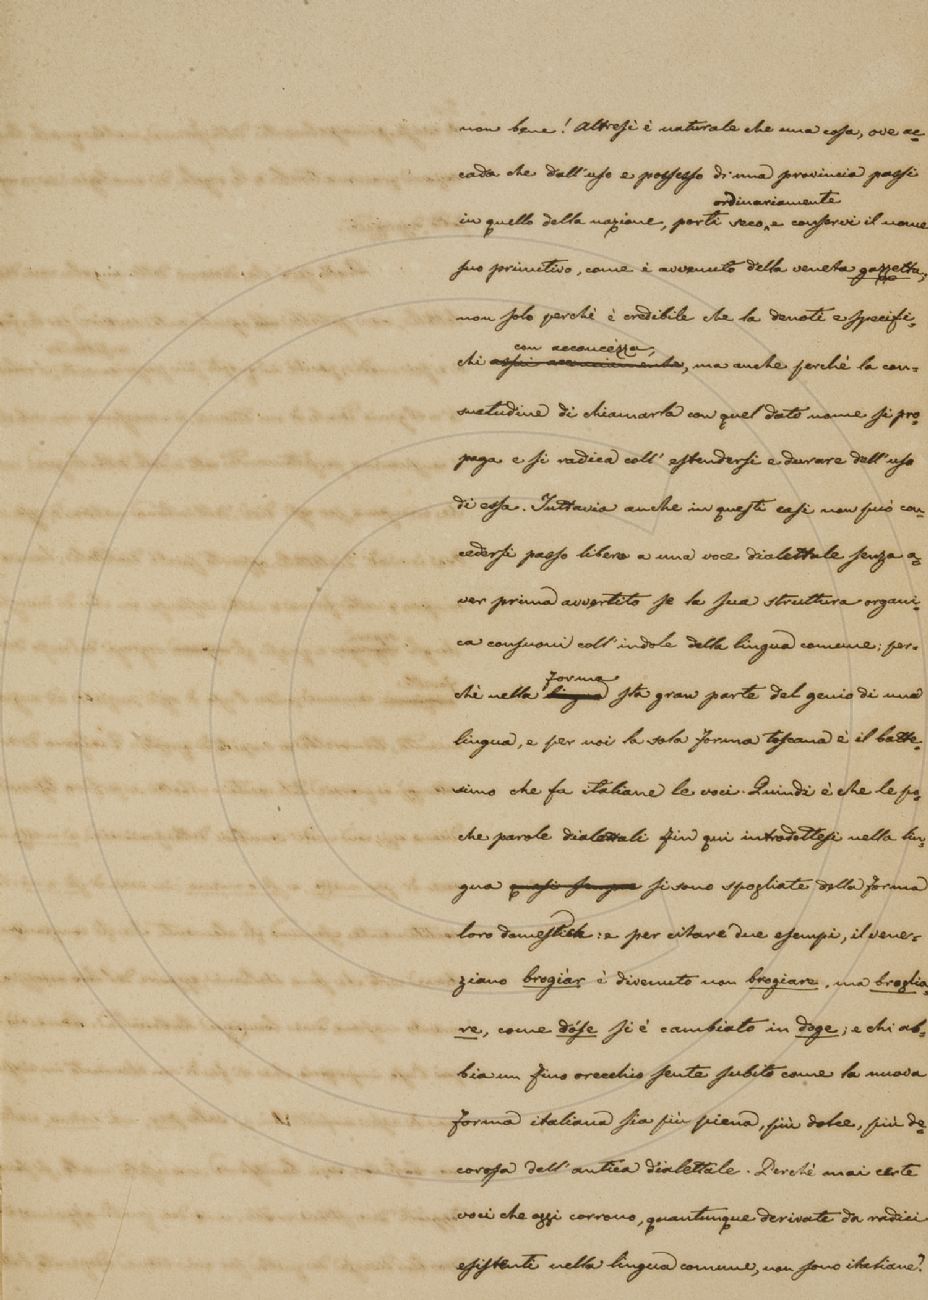 non bene! Altresì è naturale che una cosa, ove ac-
cada che dall'uso e possesso di una provincia passi
ordinariamente
in quello della nazione, porti seco, e conservi il nome
suo primitivo, come è avvenuto della veneta gazzetta;
non solo perchè è credibile che la denoti e specifi-
con acconcezza,
chi assai acconciamente, ma anche perchè la con-
suetudine di chiamarla con quel dato nome si pro-
paga e si radica coll'estendersi e durare dell'uso
di essa. Tuttavia anche in questi casi non può con-
cedersi passo libero a una voce dialettale senza a-
ver prima avvertito se la sua struttura organi-
ca consuoni coll'indole della lingua comune; per-
forma
chè nella lingua sta gran parte del genio di una
lingua, e per noi la sola forma toscana è il batte-
simo che fa italiane le voci. Quindi è che le po-
che parole dialettali fin qui introdottesi nella lin-
gua quasi sempre si sono spogliate della forma
loro domestica: e per citare due esempi, il vene-
ziano brogiàr è divenuto non brogiare, ma broglia-
re, come dóse si è cambiato in doge; e chi ab-
bia un fino orecchio sente subito come la nuova
forma italiana sia più piena, più dolce, più de-
corosa dell'antica dialettale. Perchè mai certe
voci che oggi corrono, quantunque derivate da radici
esistenti nella lingua comune, non sono italiane?